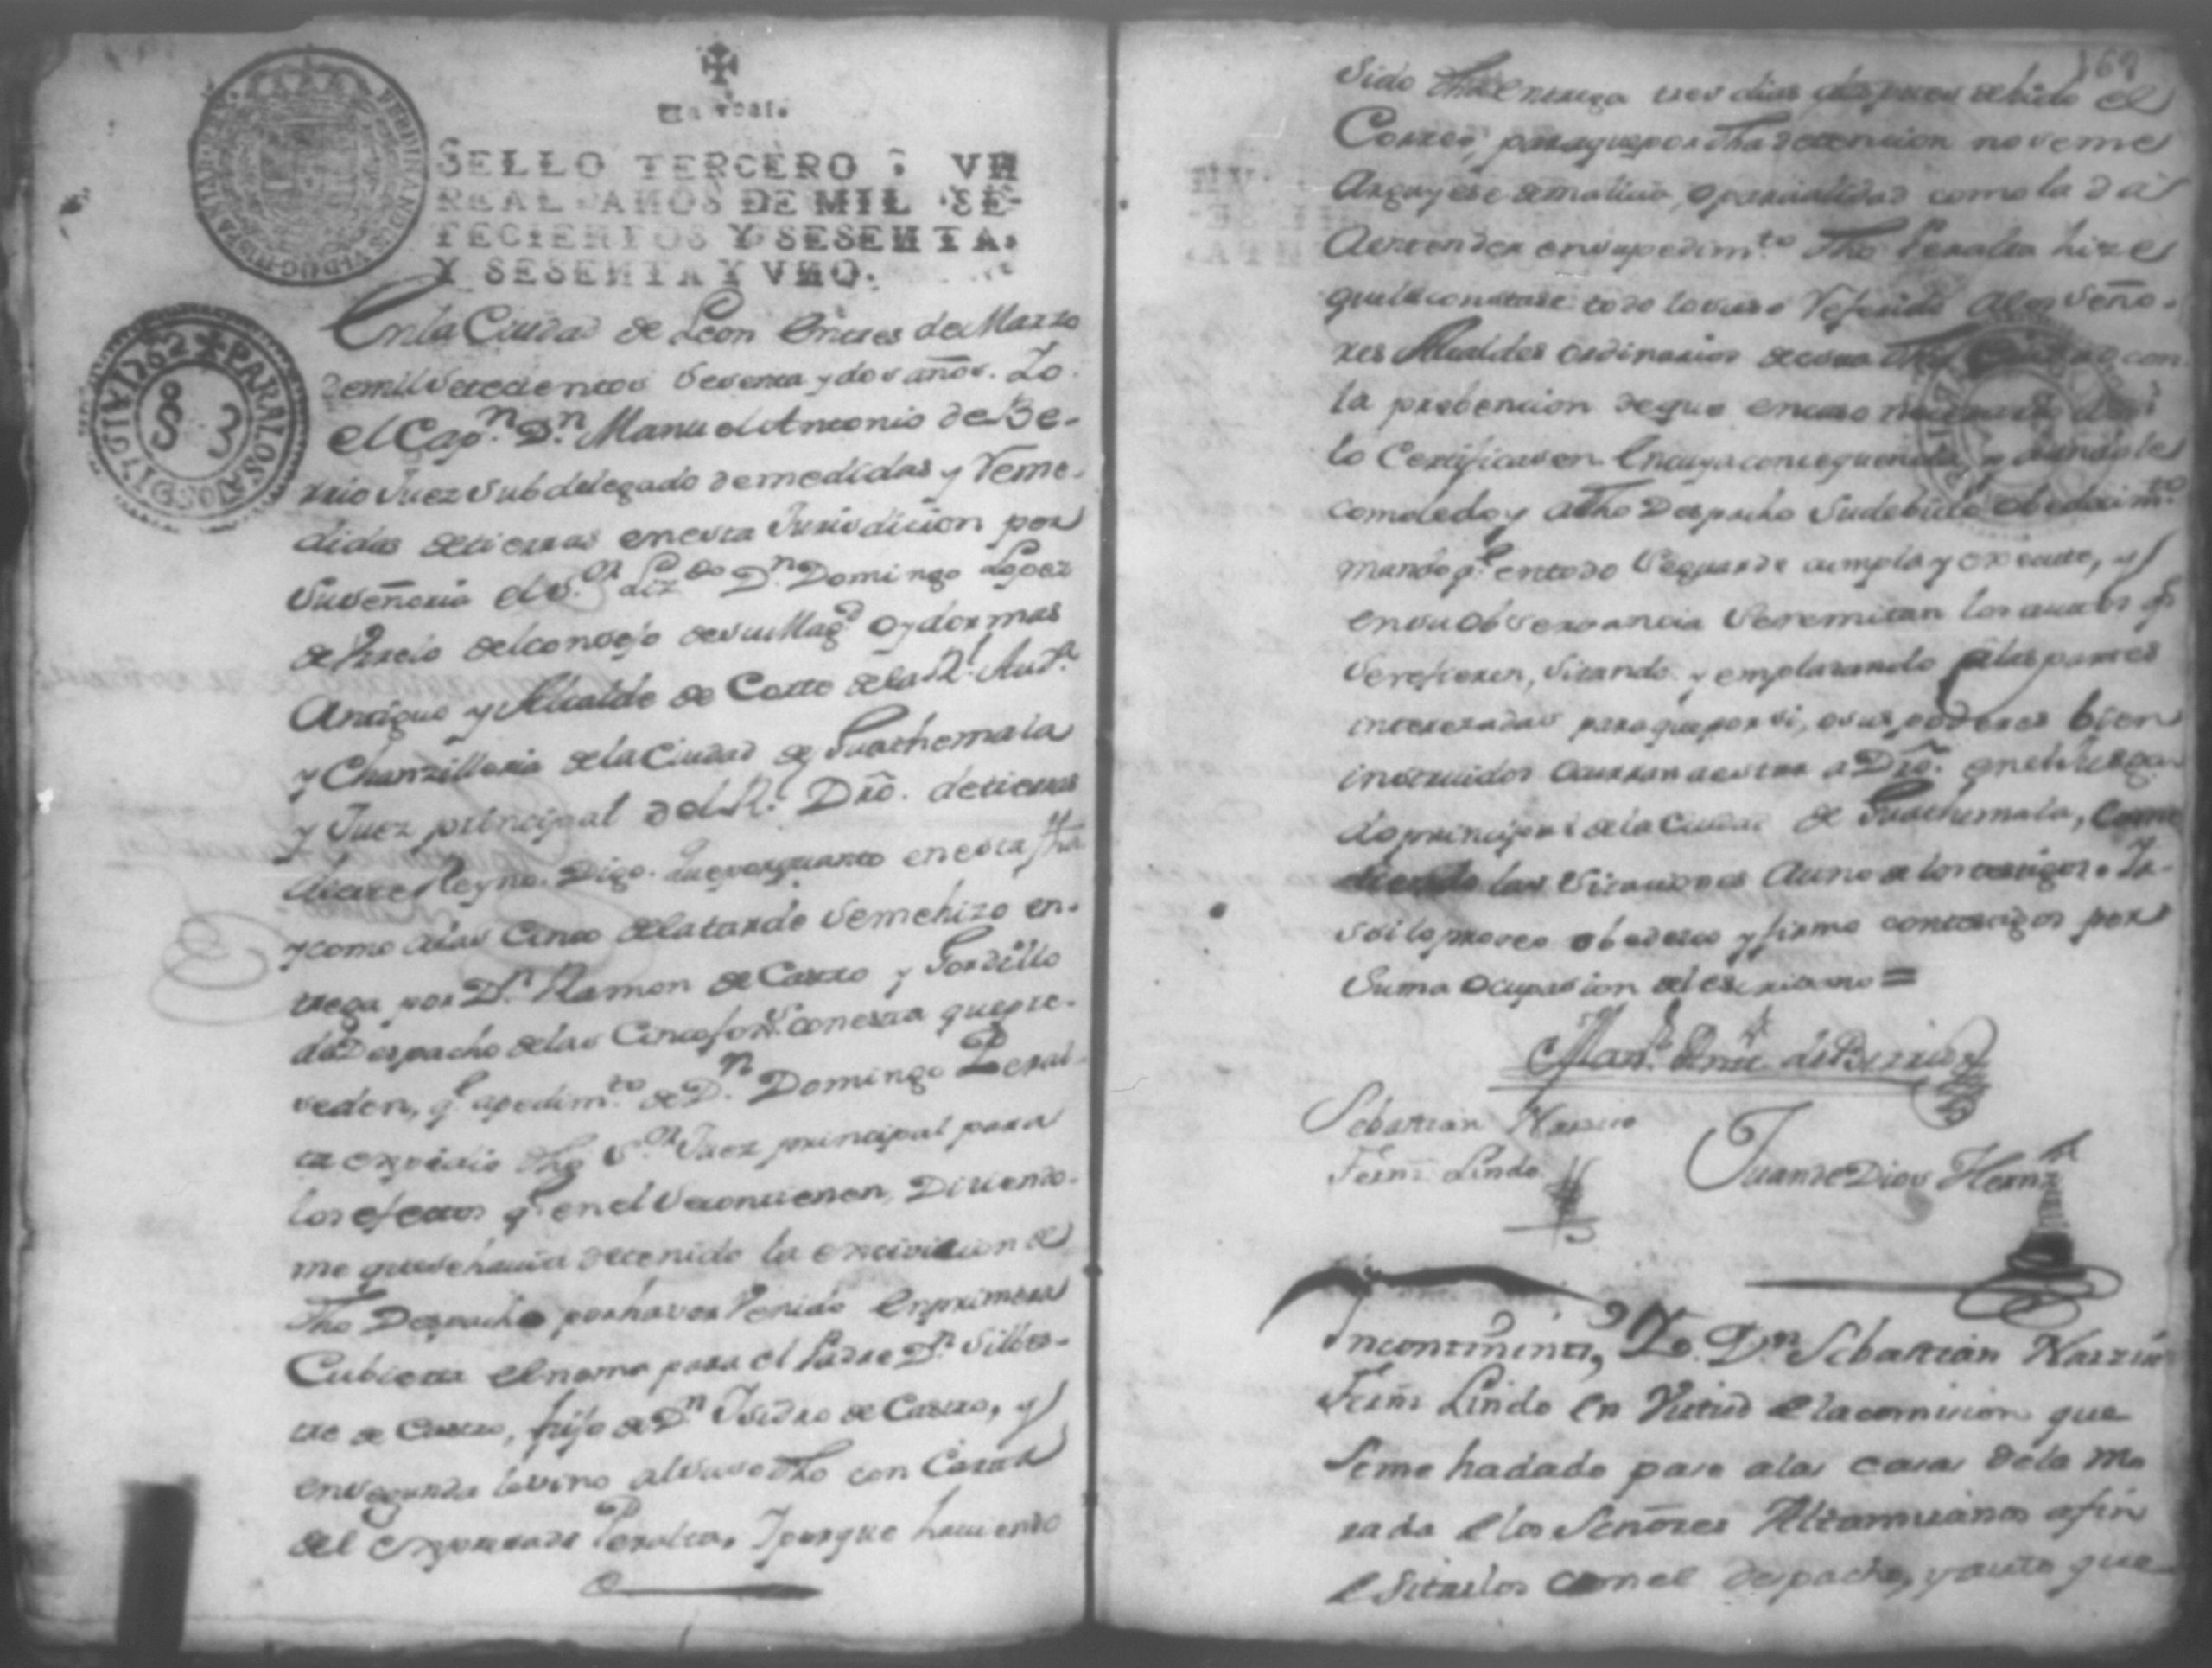 Un real.
SELLO TERCERO, VN
REAL, AÑOS DE MIL SE-
TECIENTOS Y SESENTA,
Y SESENTA Y VNO.
PARA LOS AÑOS D 1761 A 1762
S 3
En la Ciudad de Leon en tres de Marzo
de mil Setecientos Sesenta y dos años. Yo
el Cap.n D.n Manuel Antonio de Be-
rrio Juez Subdelegado de medidas y Reme-
didas de tierras en esta Jurisdicion por
Su señoria el S.or Liz.do D.n Domingo Lopez
de Vrrelo del consejo de su Mag.d oydor mas
Antiguo y Alcalde de Corte de la R.l Aud.a
y Chanzilleria de la Ciudad de Guathemala
y Juez principal del R.l Dro. de tierras
de este Reyno. Digo. que por quanto en esta fha
y como a las Cinco de la tarde Se me hizo en-
trega por D.n Ramon de Castro y Gordillo
del Despacho de las Cinco fox.s con esta que pre-
ceden, q.e a pedim.to de D.n Domingo Peral-
ta expidio dho S.or Juez principal para
los efectos q.e en el Se contienen, Diciendo-
me que se havia detenido la excivicion de
dho Despacho por haver Venido en primera
Cubierta el nema para el Padre D.n Silbes-
tre de Castro, hijo de D.n Isidro de Castro, y
en segunda lo vino al suso dho con Carta
del expresado Peralta, Y porque haciendo
169
Sido dha entrega tres dias despues de hido el
Correo, para que por dha detencion no se me
Arguyese de malicia, o parcialidad como la dá
A entender en su pedim.to dho Peralta hize
que le constase todo lo suso Referido a los Seño-
res Alcaldes ordinarios de esta dha Ciudad con
la prebencion de que en caso necesario
lo Certificasen. En cuya consequencia, y dandole
como le doy a dho Despacho Su debido obedecim.to
mando q.e en todo Se guarde cumpla y execute, y
en su observancia Se remitan los autos q.e
Se refieren, Sitando y emplazando a las partes
interezadas para que por si, o sus poderes bien
instruidos Ocurran a estar a Dro. en el Juzga-
do principal de la Ciudad de Guathemala, Come-
tiendo las Sitaciones A uno de los testigos. Y a-
si lo proveo obedezco y firmo con testigos por
Suma Ocupasion del escribano =
Man.l Ant.o de Berrio
Sebastian Narciso
Fern.z Lindo
Juan de Dios Hern.z
Incontinenti, Yo D.n Sebastian Narciso
Fern.z Lindo en Virtud de la comicion que
Se me ha dado pase a las casas de la mo
rada de los Señores Altamiranos a fin
de Sitarlos con el despacho, y auto que